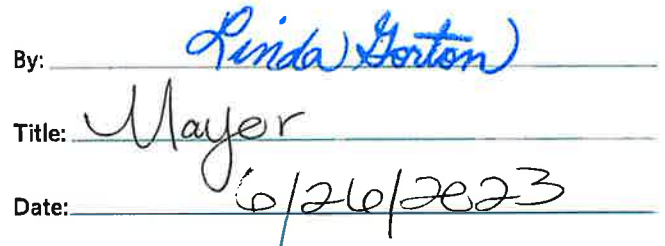 By: Linda Gorton
Title: Mayor
Date: 6/26/2023